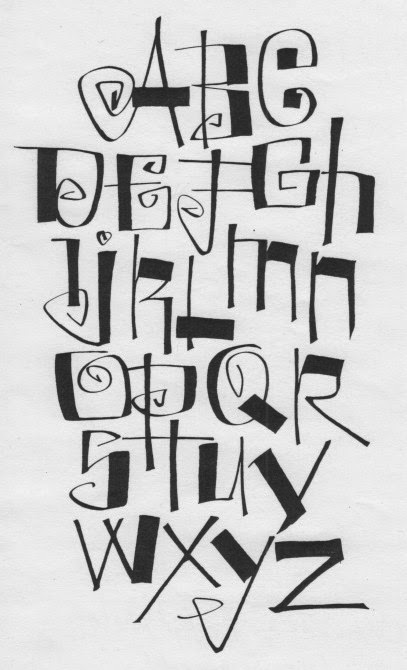 ABC
DEFGh
IjkLmn
OPQR
STuV
WXyZ